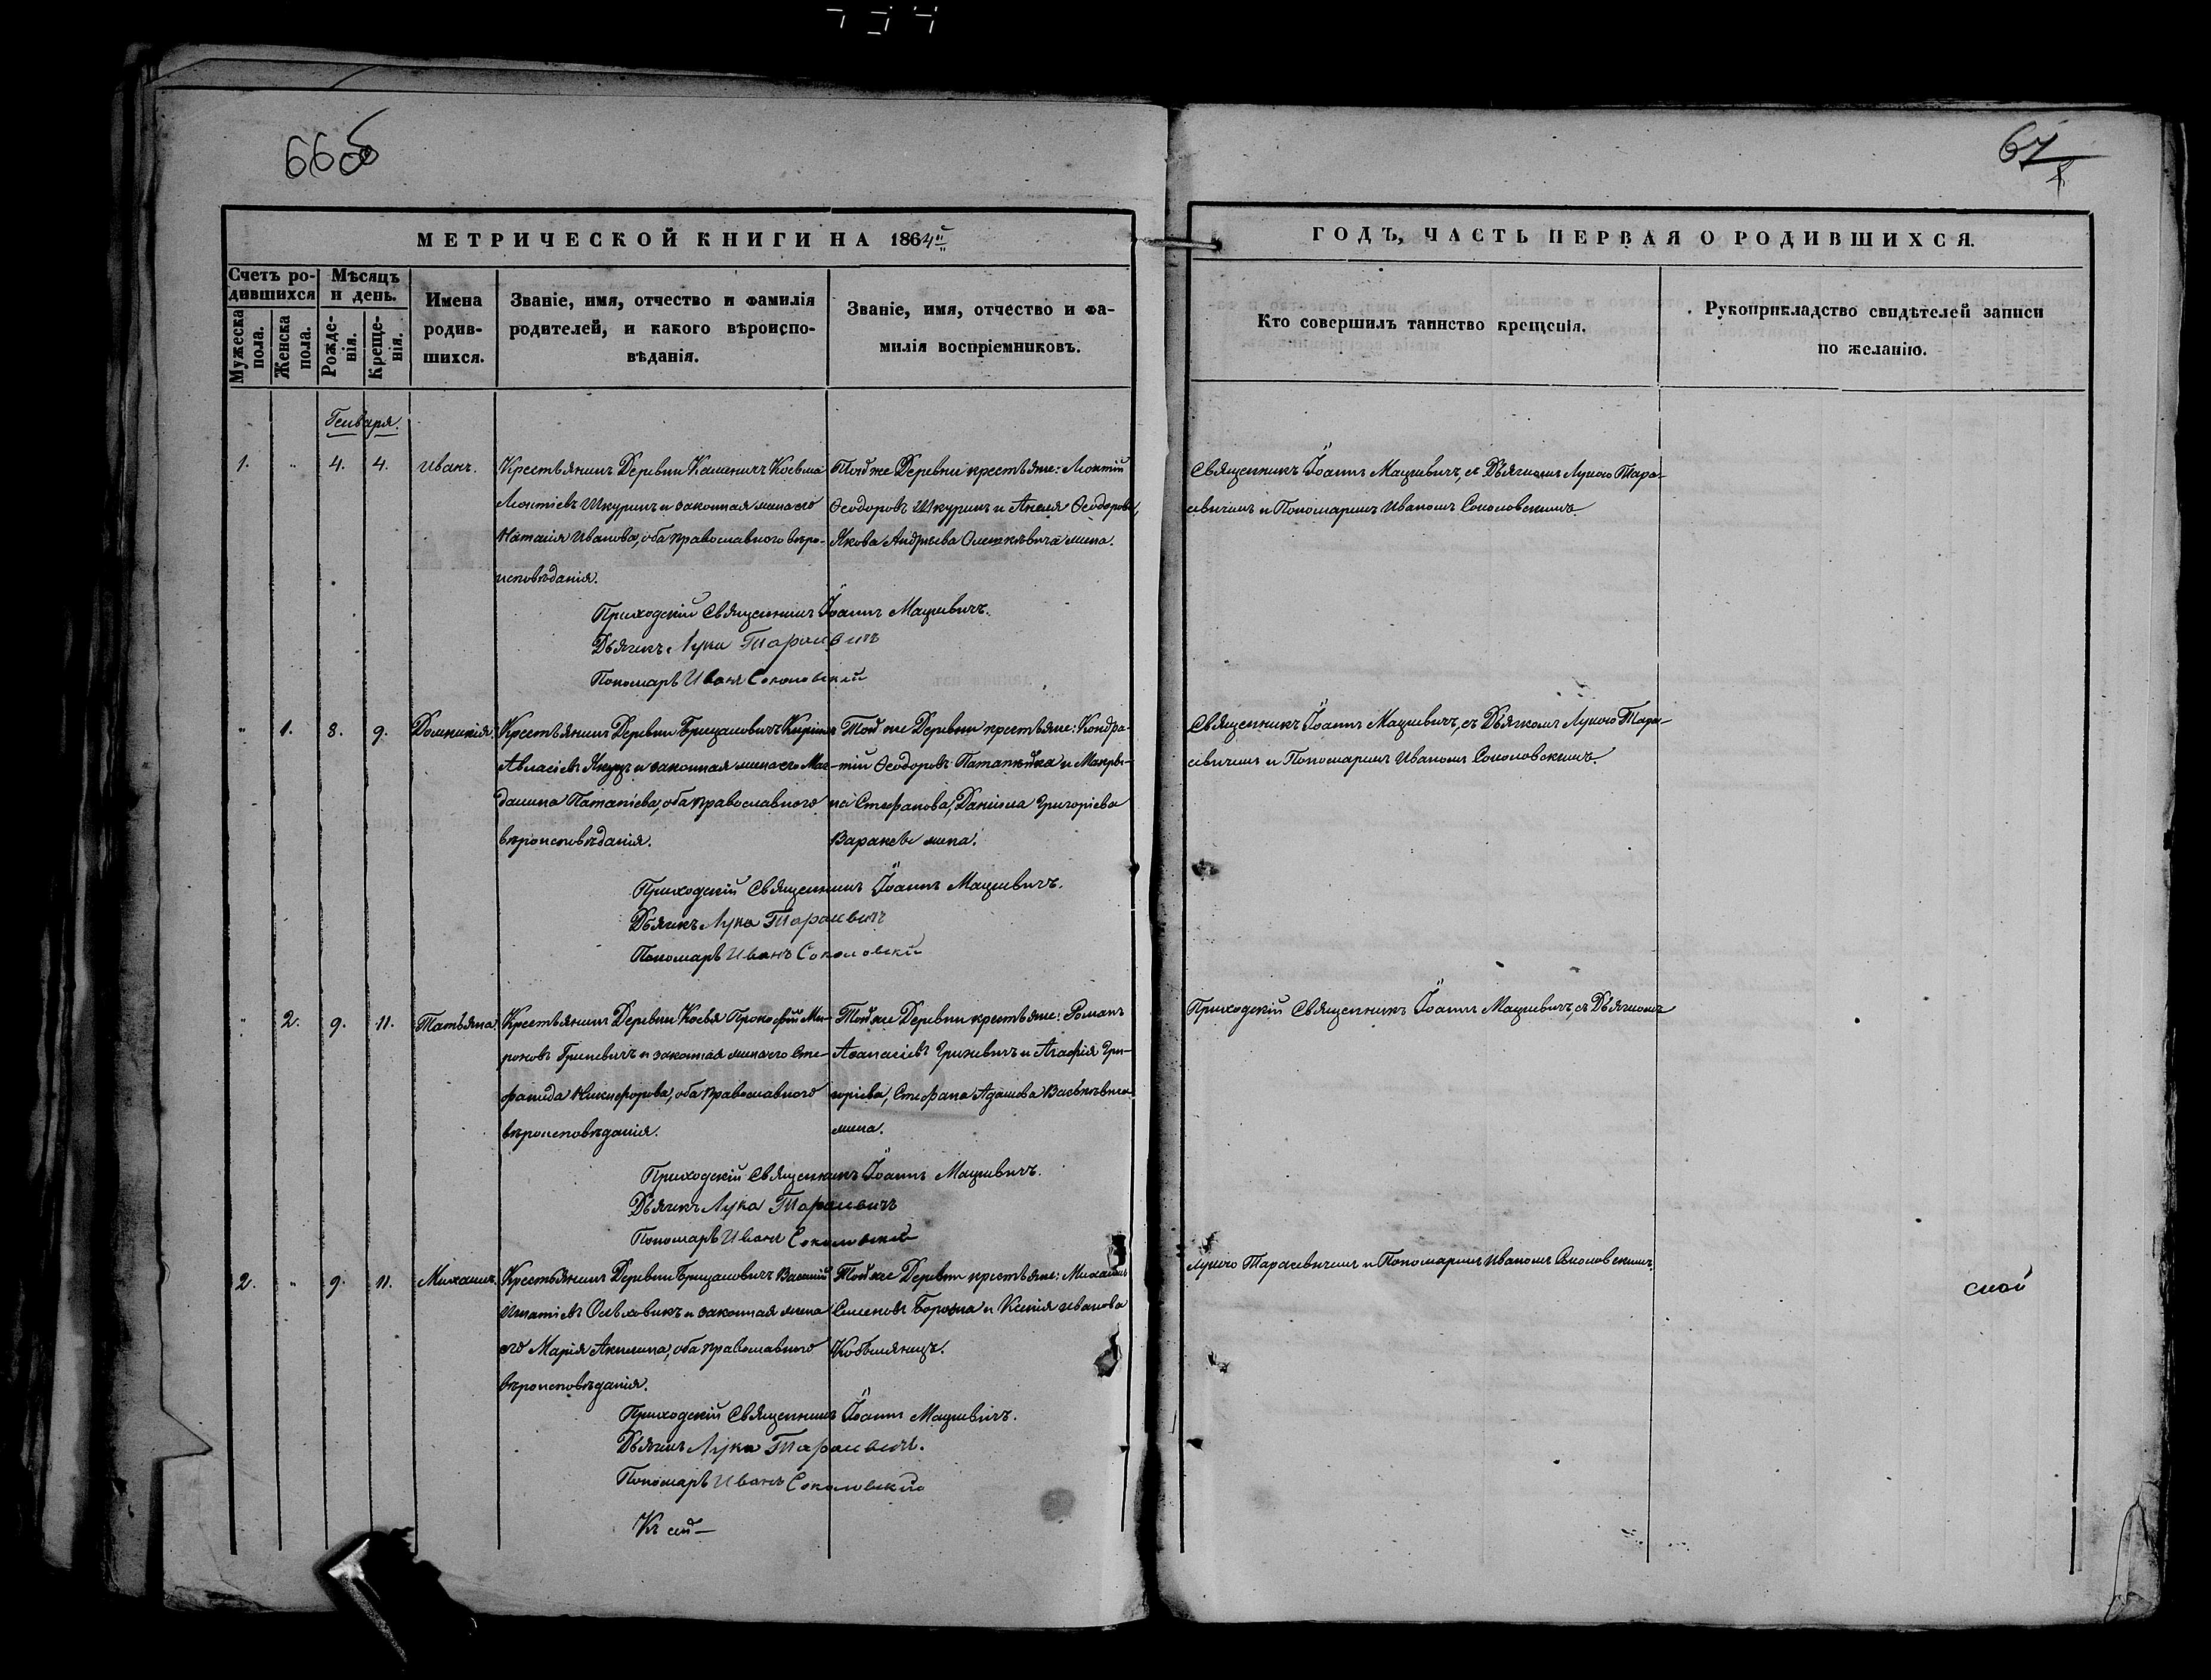 66об
67
МЕТРИЧЕСКОЙ КНИГИ НА 1864й
ГОДЪ, ЧАСТЬ ПЕРВАЯ О РОДИВШИХСЯ.
Счетъ родившихся
Мужеска пола.
Женска пола.
Мѣсяцъ и день.
Рожденія.
Крещенія.
Имена родившихся.
Званіе, имя, отчество и фамилія
родителей, и какого вѣроиспо-
вѣданія.
Званіе, имя, отчество и фа-
милія воспріемниковъ.
Кто совершилъ таинство крещенія.
Рукоприкладство свидѣтелей записи
по желанію.
Генваря.
1. " 4. 4. Иванъ.
Крестьянинъ Деревни Каменичъ Косьма
Леонтіевъ Шкуринъ и законная жена его
Наталія Иванова, оба православнаго вѣро-
исповѣданія.
Тойже Деревни крестьяне: Леонтій
Ѳеодоровъ Шкуринъ и Анеля Ѳеодорова,
Якова Андреева Олешкевича жена.
Священникъ Іоаннъ Мацкевичъ, съ Дьячкомъ Лукою Тара-
севичемъ и Пономаремъ Иваномъ Соколовскимъ.
Приходскій Священникъ Іоаннъ Мацкевичъ.
Дьячекъ Лука Тарасевичъ
Пономарь Иванъ Соколовскій
" 1. 8. 9. Домникія.
Крестьянинъ Деревни Брицаловичъ
Авласіевъ и законная жена его Маг-
далина Патапіева, оба православнаго
вѣроисповѣданія.
Тойже Деревни крестьяне: Кондра-
тій Ѳеодоровъ и
Стефанова, Даніила Григоріева
жена.
Священникъ Іоаннъ Мацкевичъ, съ Дьячкомъ Лукою Тара-
севичемъ и Пономаремъ Иваномъ Соколовскимъ.
Приходскій Священникъ Іоаннъ Мацкевичъ.
Дьячекъ Лука Тарасевичъ
Пономарь Иванъ Соколовскій
" 2. 9. 11. Татьяна
Крестьянинъ Деревни Косья Прокофій Ми-
роновъ Гриневичъ и законная жена его Сте-
фанида Никифорова, оба православнаго
вѣроисповѣданія.
Тойже Деревни крестьяне: Романъ
Аѳанасіевъ Гриневичъ и Агафія Гри-
горіева, Стефана Адамова Васькевича
жена.
Приходскій Священникъ Іоаннъ Мацкевичъ, съ Дьячкомъ
Приходскій Священникъ Іоаннъ Мацкевичъ.
Дьячекъ Лука Тарасевичъ
Пономарь Иванъ Соколовскій
2. " 9. 11. Михаилъ.
Крестьянинъ Деревни Брицаловичъ Василій
Игнатіевъ и законная жена
его Марія Акимина, оба православнаго
вѣроисповѣданія.
Тойже Деревни крестьяне: Михаилъ
Семеновъ и Ксенія Иванова
Лукою Тарасевичемъ и Пономаремъ Иваномъ Соколовскимъ.
Приходскій Священникъ Іоаннъ Мацкевичъ.
Дьячекъ Лука Тарасевичъ.
Пономарь Иванъ Соколовскій
Къ сей—